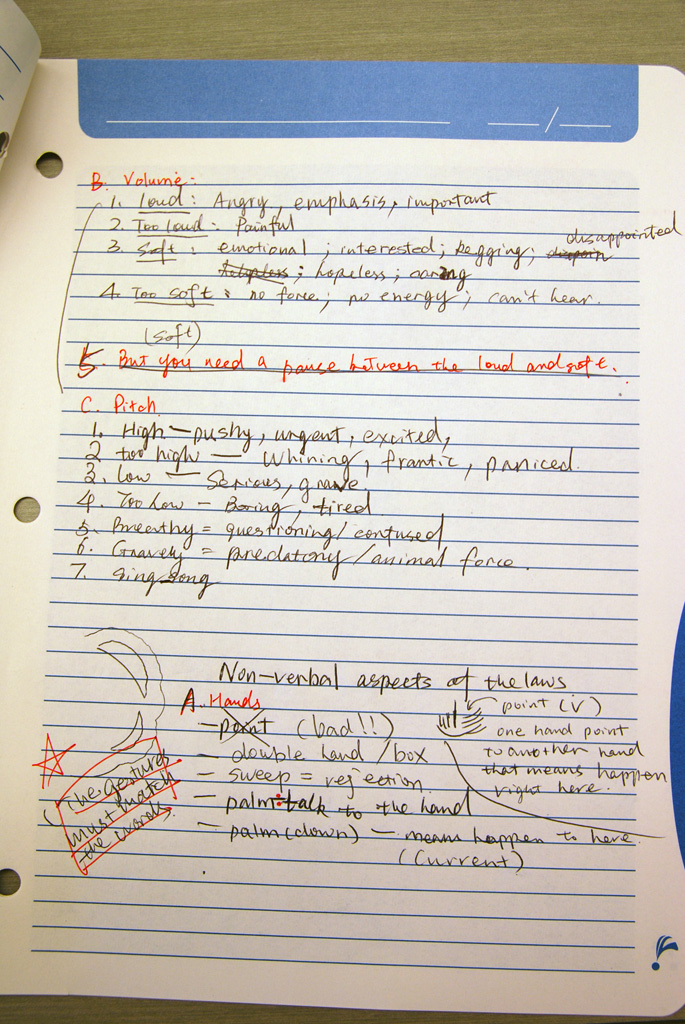 B. Volume:
1. loud: Angry, emphasis, important
2. Too loud: Painful
3. Soft: emotional; interested; begging; disappointed
helpless; hopeless; caring
4. Too soft: no force; no energy; can't hear.
(soft)
5. But you need a pause between the loud and soft.
C. Pitch
1. High — pushy, urgent, excited,
2 too high — Whining, frantic, paniced.
3. low — Serious, grave
4. Too Low — Boring, tired
5. Breathy = questioning / confused
6. Gravely = predatory / animal force.
7. Sing song
Non-verbal aspects of the laws
A. Hands
— point (bad!!)
— double hand / box
— sweep = rejection.
— palm: talk to the hand
— palm (down) — means happen to here.
(Current)
point (V)
one hand point
to another hand
that means happen
right here.
(The gestures
must match
the words.